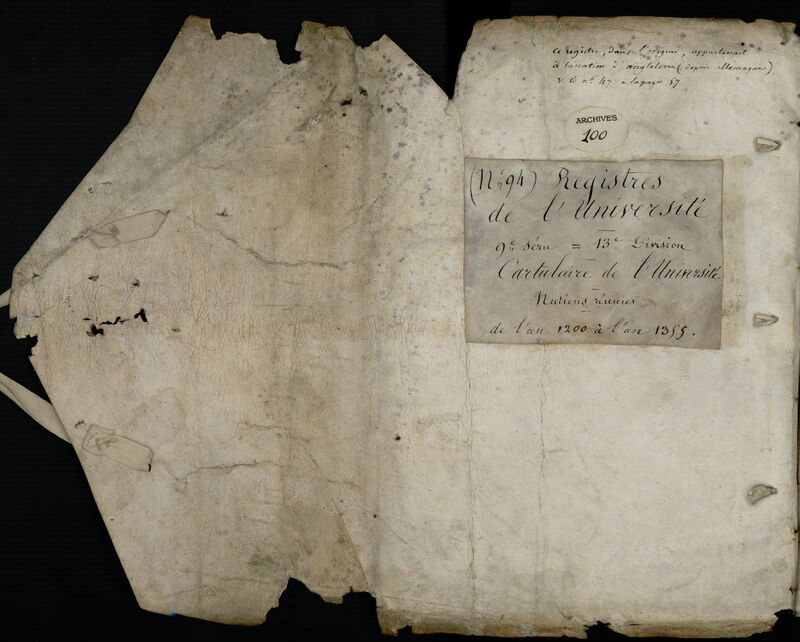 Ce registre, dans l'origine, appartenait
à la nation d'angleterre (depuis allemagne)
V. le n° 47 a la page 57
ARCHIVES
100
(N° 94) Registres
de l'Université
9e Série = 13e Division
Cartulaire de l'Université
Nations réunies
de l'an 1200 à l'an 1355.